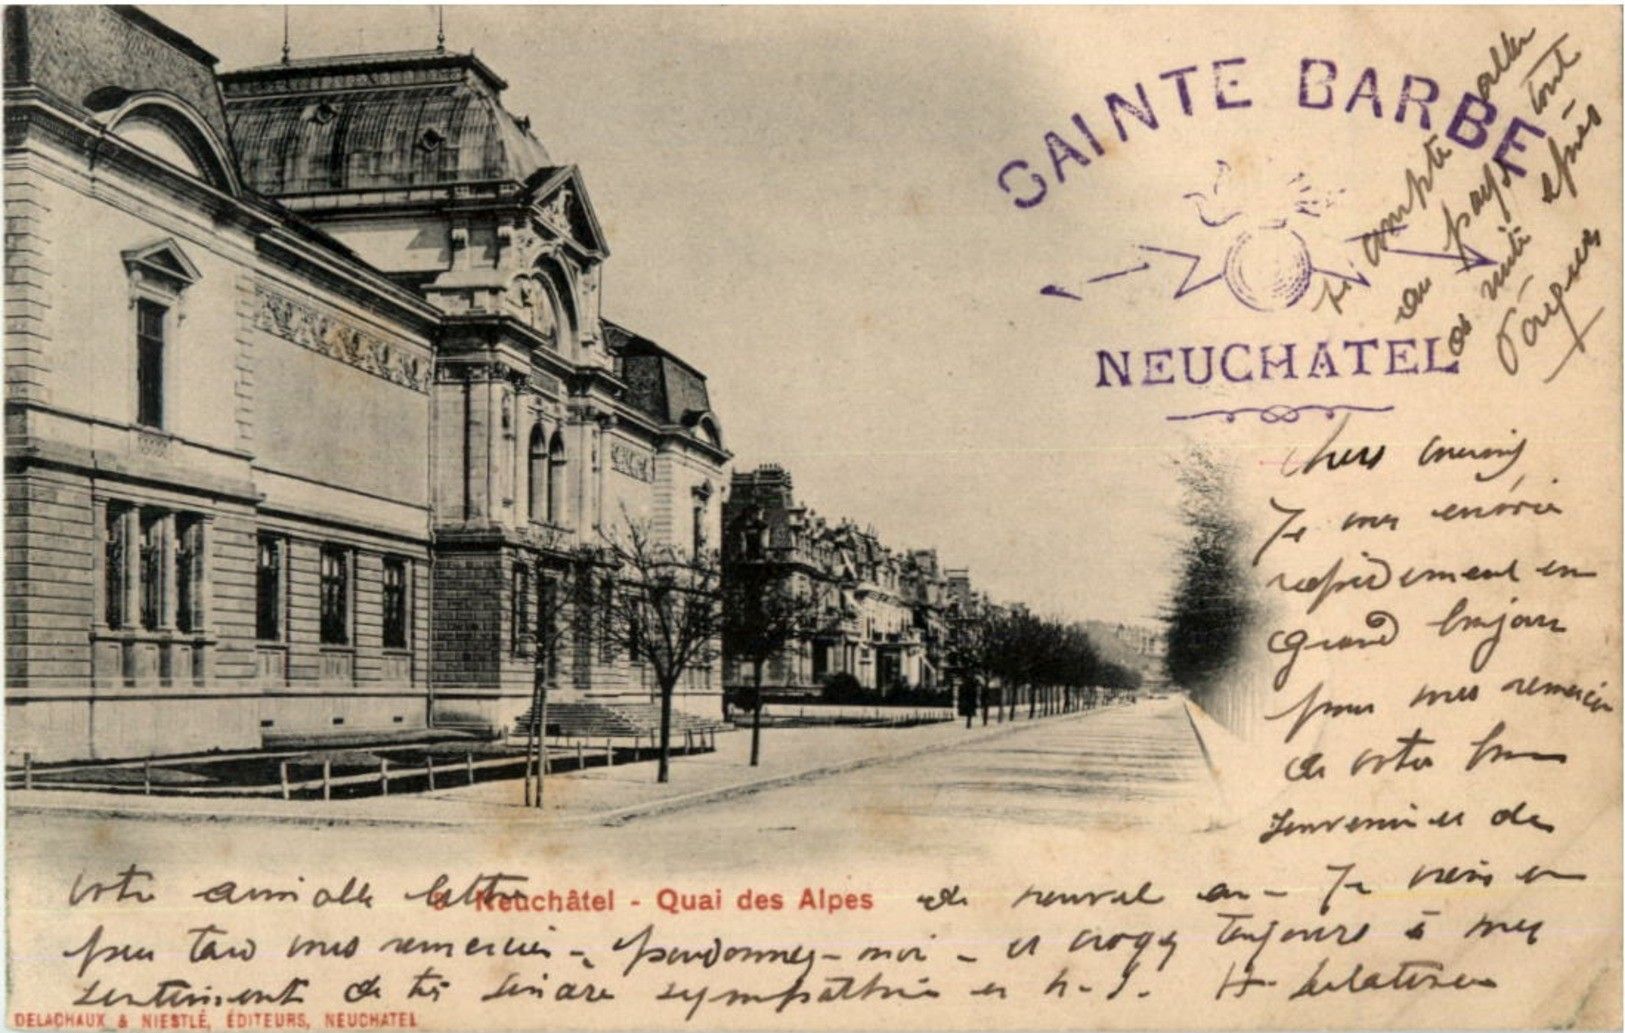 SAINTE BARBE
NEUCHATEL
compte aller
au pays tout
de suite après
Pâques
Chers
Je vous envoie
rapidement un
grand bonjour
pour vous remercier
de votre bon
souvenir et de
votre aimable lettre
de nouvel an - Je viens un
3 Neuchâtel - Quai des Alpes
peu tard vous remercier - pardonnez-moi - et croyez toujours à mes
sentiments de très sincère sympathie
DELACHAUX & NIESTLÉ, ÉDITEURS, NEUCHATEL